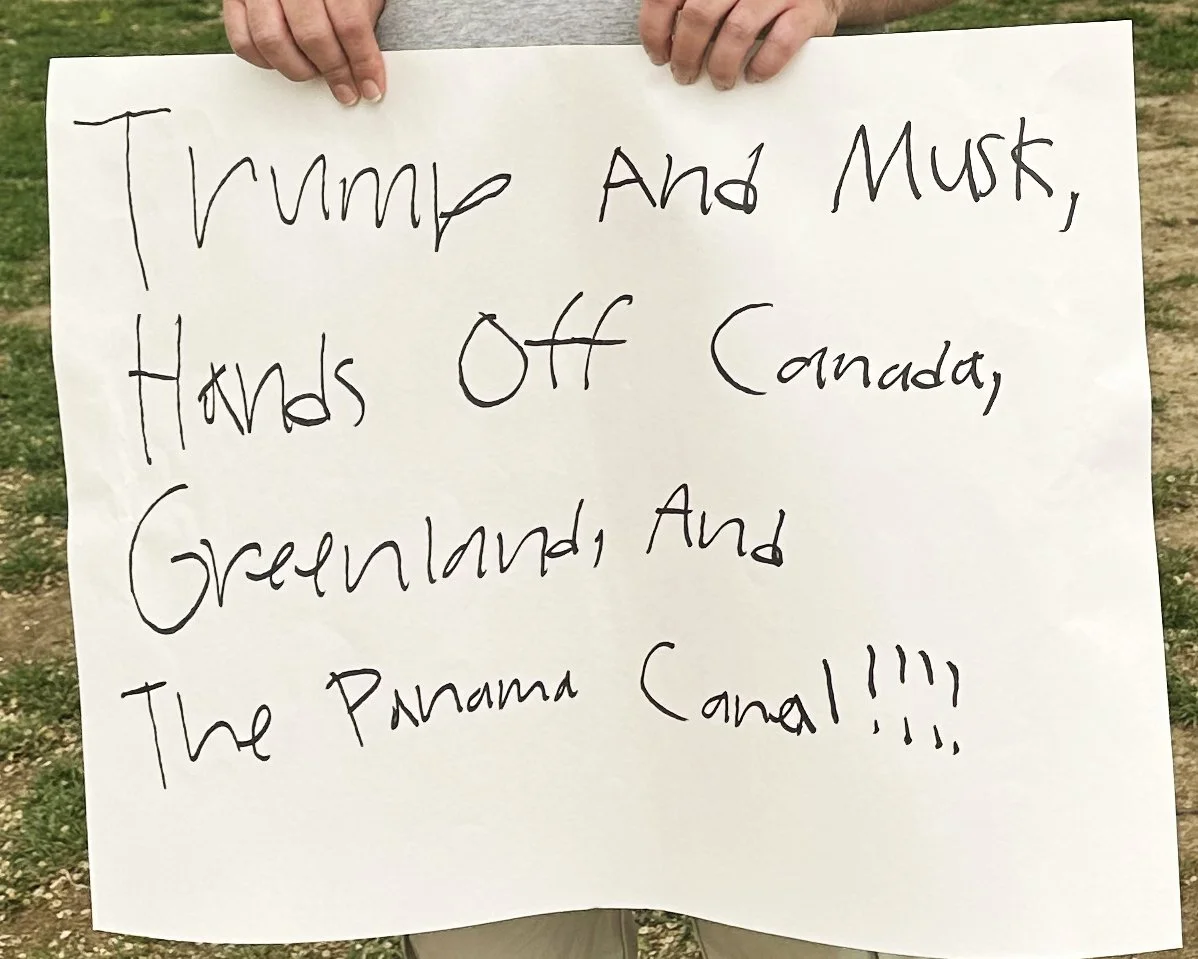 Trump And Musk,
Hands Off Canada,
Greenland, And
The Panama Canal!!!!